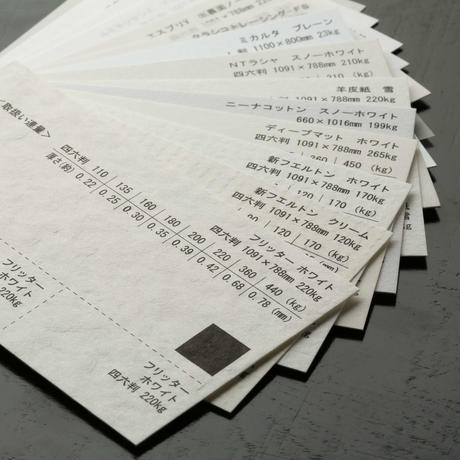 エスプリV
クラシコトレーシング-FS
ミカルタ プレーン
判 1100×800mm 23kg
NTラシャ スノーホワイト
四六判 1091×788mm 210kg
羊皮紙 雪
四六判 1091×788mm 220kg
ニーナコットン スノーホワイト
660×1016mm 199kg
ディープマット ホワイト
四六判 1091×788mm 265kg
360 450 (kg)
新フエルトン ホワイト
四六判 1091×788mm 170kg
120 170 (kg)
新フエルトン クリーム
四六判 1091×788mm 120kg
90 120 170 (kg)
フリッター ホワイト
四六判 1091×788mm 220kg
<取扱い連量>
四六判 110 135 160 180 200 220 360 440 (kg)
厚さ(約) 0.22 0.25 0.30 0.35 0.39 0.42 0.68 0.78 (mm)
フリッター
ホワイト
四六判 220kg
フリッター
ホワイト
220kg